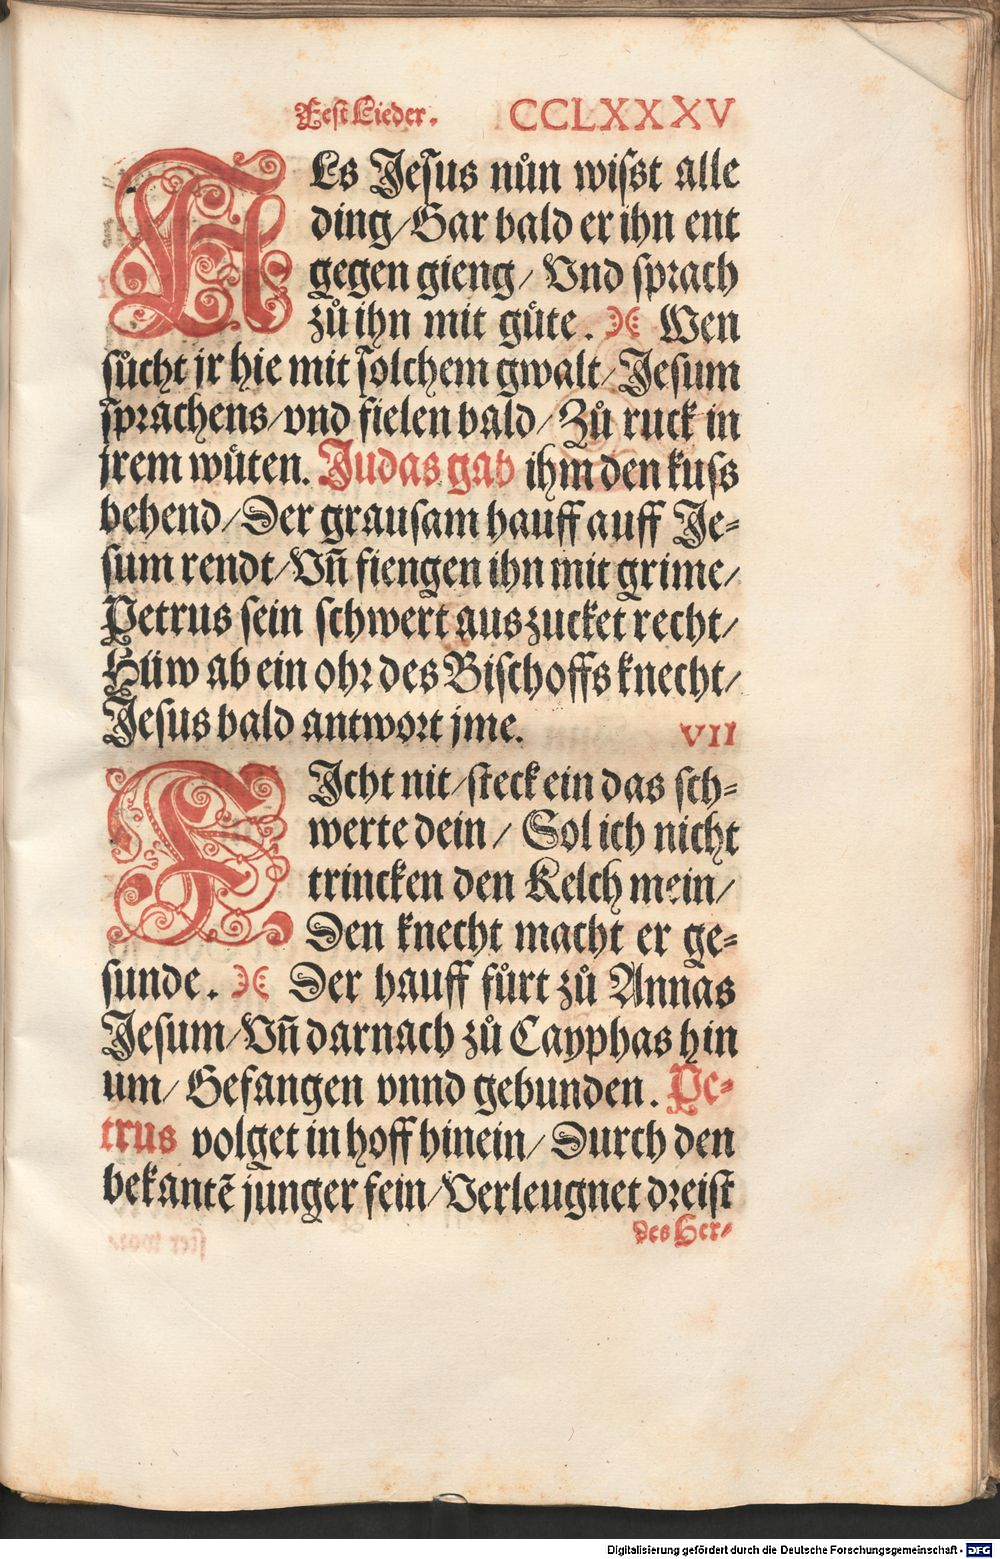 Fest Lieder. CCLXXXV
ALs Jeſus nůn wiſst alle
ding/ Gar bald er ihn ent
gegen gieng/ Vnd ſprach
zů ihn mit gůte. Wen
ſůcht jr hie mit ſolchem gwalt/ Jeſum
ſprachens/ vnd fielen bald/ Zů ruck in
jrem wůten. Judas gab ihm den kuſs
behend/ Der grauſam hauff auff Je-
ſum rendt/ Vñ fiengen ihn mit grime/
Petrus ſein ſchwert auszucket recht/
Hüw ab ein ohr des Biſchoffs knecht/
Jeſus bald antwort jme. VII
FIcht nit/ ſteck ein das ſch-
werte dein/ Sol ich nicht
trincken den Kelch mein/
Den knecht macht er ge-
ſunde. Der hauff fůrt zů Annas
Jeſum/ Vñ darnach zů Cayphas hin
um/ Gefangen vnnd gebunden. Pe-
trus volget in hoff hinein/ Durch den
bekantẽ junger fein/ Verleugnet dreiſt
des Her-
Digitalisierung gefördert durch die Deutsche Forschungsgemeinschaft - DFG